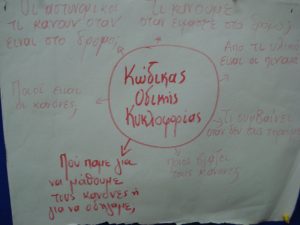 Οι αστυνομικοί
τι κάνουν όταν
είναι στο δρόμο;
Τι κάνουμε
όταν είμαστε στο δρόμο;
Από τι
είναι οι
Ποιοί είναι
οι κανόνες;
Κώδικας
Οδικής
Κυκλοφορίας
Τι συμβαίνει
όταν δεν τις
Ποιος
τους κανόνες
Πού πάμε για
να μάθουμε
τους κανόνες ή
για να οδηγάμε;